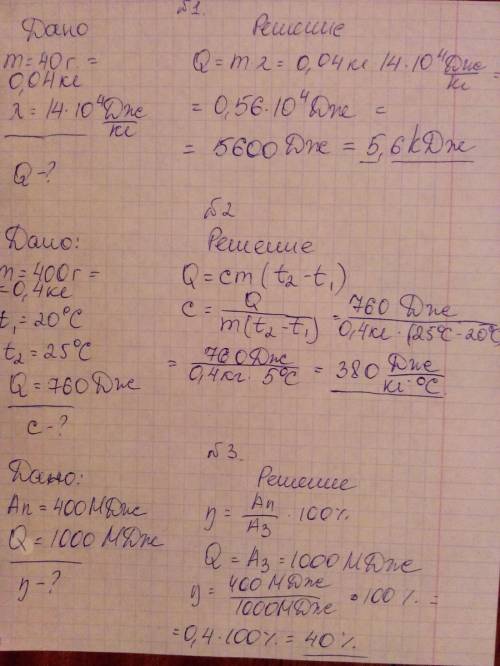 №1.
Дано
m=40г.=
0,04кг
λ=14·10⁴Дж/кг
Q-?
Решение
Q=mλ=0,04кг 14·10⁴Дж/кг=
=0,56·10⁴Дж=
=5600Дж=5,6кДж
№2
Дано:
m=400г=
=0,4кг
t₁=20°C
t₂=25°C
Q=760Дж
c-?
Решение
Q=cm(t₂-t₁)
c=Q/m(t₂-t₁)=760 Дж/0,4кг·(25°C-20°C
=760Дж/0,4кг·5°C=380 Дж/кг·°C
№3.
Дано:
Aп=400МДж
Q=1000МДж
η-?
Решение
η=Aп/Aз·100%
Q=Aз=1000МДж
η=400МДж/1000МДж·100%=
=0,4·100%=40%